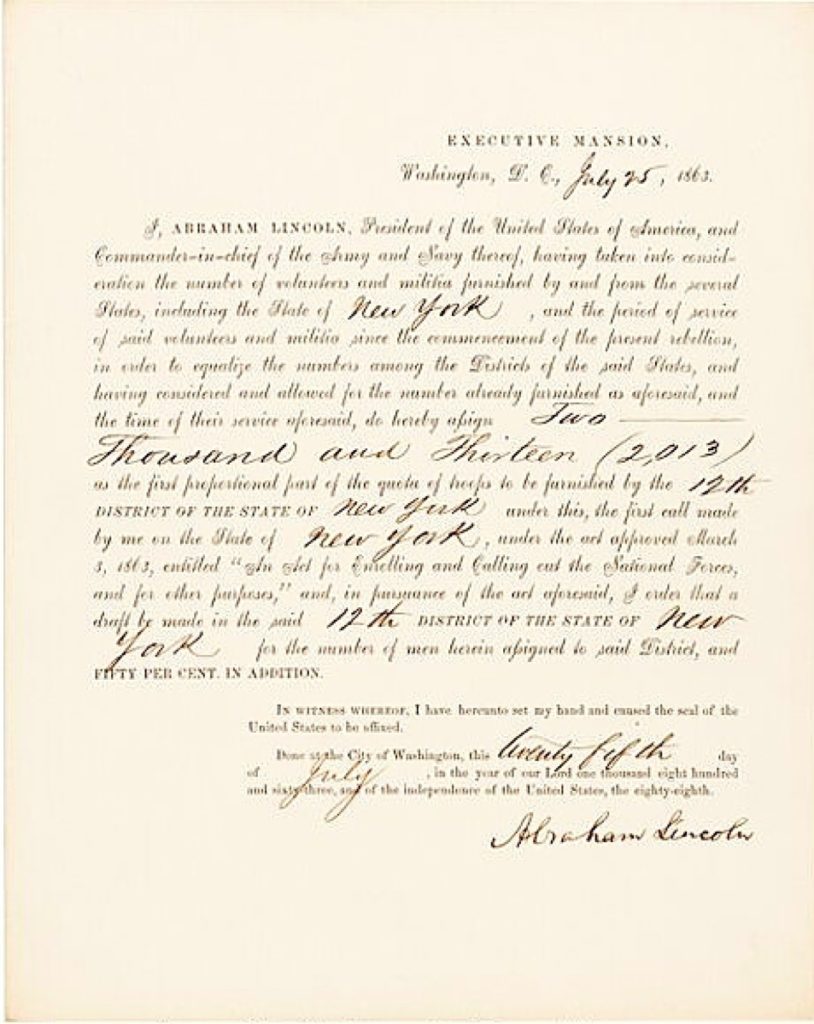 EXECUTIVE MANSION,
Washington, D. C., July 25, 1863.
I, ABRAHAM LINCOLN, President of the United States of America, and
Commander-in-chief of the Army and Navy thereof, having taken into consid-
eration the number of volunteers and militia furnished by and from the several
States, including the State of New York, and the period of service
of said volunteers and militia since the commencement of the present rebellion,
in order to equalize the numbers among the Districts of the said States, and
having considered and allowed for the number already furnished as aforesaid, and
the time of their service aforesaid, do hereby assign Two
Thousand and Thirteen (2,013)
as the first proportional part of the quota of troops to be furnished by the 12th
DISTRICT OF THE STATE OF New York under this, the first call made
by me on the State of New York, under the act approved March
3, 1863, entitled "An Act for Enrolling and Calling out the National Forces,
and for other purposes," and, in pursuance of the act aforesaid, I order that a
draft be made in the said 12th DISTRICT OF THE STATE OF New
York for the number of men herein assigned to said District, and
FIFTY PER CENT. IN ADDITION.
IN WITNESS WHEREOF, I have hereunto set my hand and caused the seal of the
United States to be affixed.
Done at the City of Washington, this twenty fifth day
of July, in the year of our Lord one thousand eight hundred
and sixty-three, and of the independence of the United States, the eighty-eighth.
Abraham Lincoln